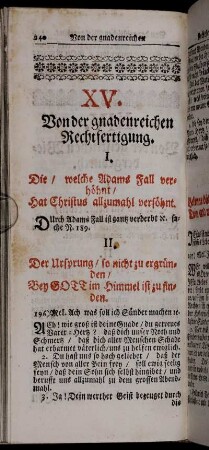 240 Von der gnadenreichen
XV.
Von der gnadenreichen
Rechtfertigung.
I.
Die / welche Adams Fall ver-
höhnt /
Hat Christus allzumahl versöhnt.
Durch Adams Fall ist gantz verderbt ec. su-
che N. 189.
II.
Der Ursprung / so nicht zu ergrün-
den /
Bey GOTT im Himmel ist zu fin-
den.
196. Mel. Ach was soll ich Sünder machen ec.
ACh! wie groß ist deine Gnade / du getreues
Vater-Hertz? daß dich unser Noth und
Schmertz / daß dich aller Menschen Schade
hat erbarmet väterlich / uns zu helffen ewiglich.
2. Du hast uns so hoch geliebet / daß der
Mensch von aller Pein frey / soll ewig seelig
seyn / daß dein Sohn sich selbst hingibet / und
beruffe uns allzumahl zu dem grossen Abend-
mahl.
3. Ja! Dein werther Geist bezeuget durch
die